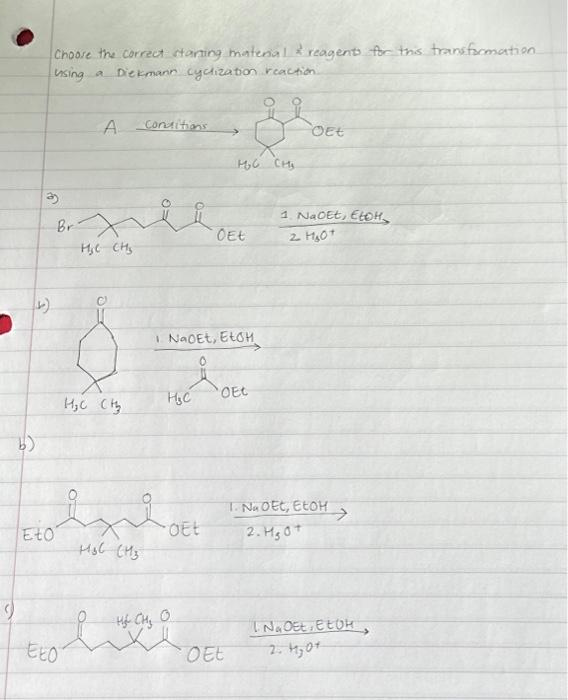 Choose the correct starting material & reagents for this transformation
using a Diekmann cyclization reaction
O O
A Conditions OEt
H3C CH3
a)
O O
Br OEt 1. NaOEt, EtOH
H3C CH3 2. H3O+
b)
O
1. NaOEt, EtOH
O
H3C CH3 H3C OEt
b)
O O
EtO OEt 1. NaOEt, EtOH
H3C CH3 2. H3O+
c)
O H3C CH3 O
EtO OEt 1. NaOEt, EtOH
2. H3O+